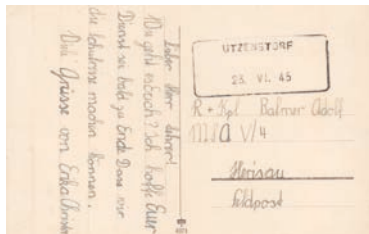 Lieber Herr Lehrer!
Wie geht es Euch? Ich hoffe Euer
Dienst sei bald zu Ende Dass wir
die Schulreise machen können.
Viele Grüsse von Erika Christen
UTZENSTORF
23. VI. 45
R + Kpl. Balmer Adolf
M S A V/4
Herisau
Feldpost